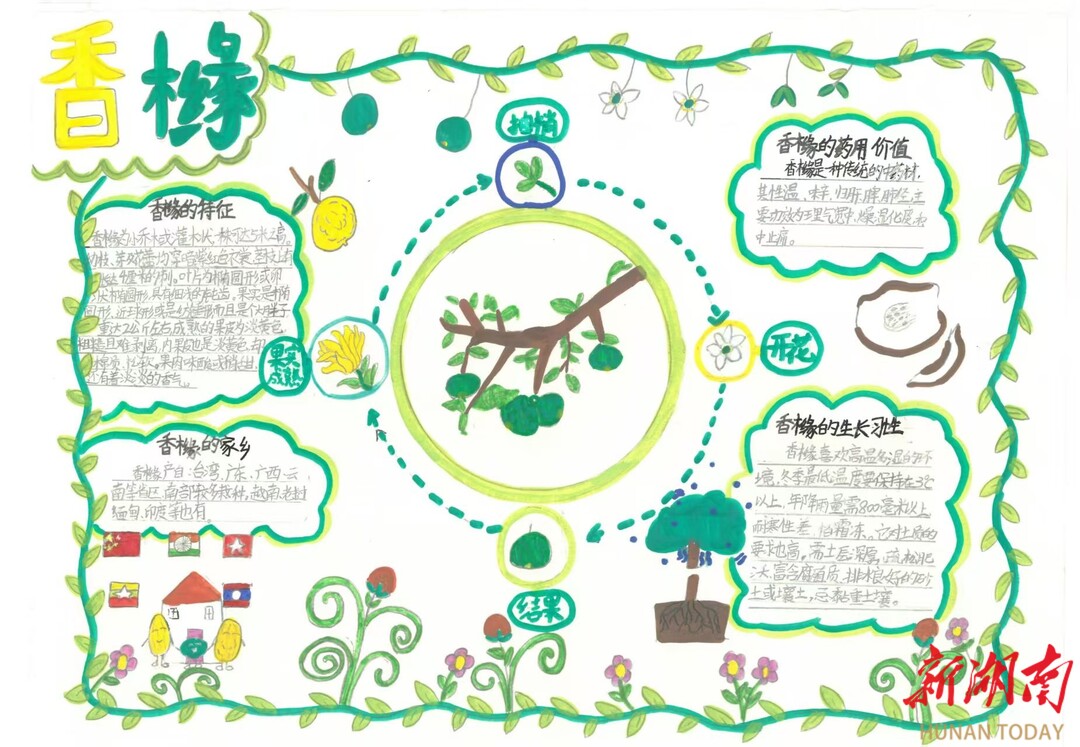 香橼
香橼的特征
香橼为小乔木或灌木状,株可达5米之高。
幼枝、芽及花蕾均呈暗紫红色
叶片为椭圆形或卵
状椭圆形,
果实是椭
圆形、近球形或是纺锤形而且是个大胖子
重达2公斤左右成熟的果皮为淡黄色,
粗糙且难剥离,内果皮也是淡黄色,却
松软,果肉味酸或稍甜,
还有着淡淡的香气。
香橼的家乡
香橼产自:台湾、广东、广西、云
南等省区,南部较多栽种,越南、老挝
缅甸、印度等也有。
抽梢
开花
结果
果实
成熟
香橼的药用价值
香橼是一种传统的中药材,
其性温、味辛,归肝脾肺经,主
要功效为理气宽中、燥湿化痰
中止痛。
香橼的生长习性
香橼喜欢高温多湿的环
境,冬季最低温度要保持在3℃
以上,年降雨量需800毫米以上
耐寒性差,怕霜冻。它对土质的
要求也高。需土层深厚,疏松肥
沃、富含腐殖质、排水良好的砂
土或壤土,忌黏重土壤。
新湖南
HUNAN TODAY